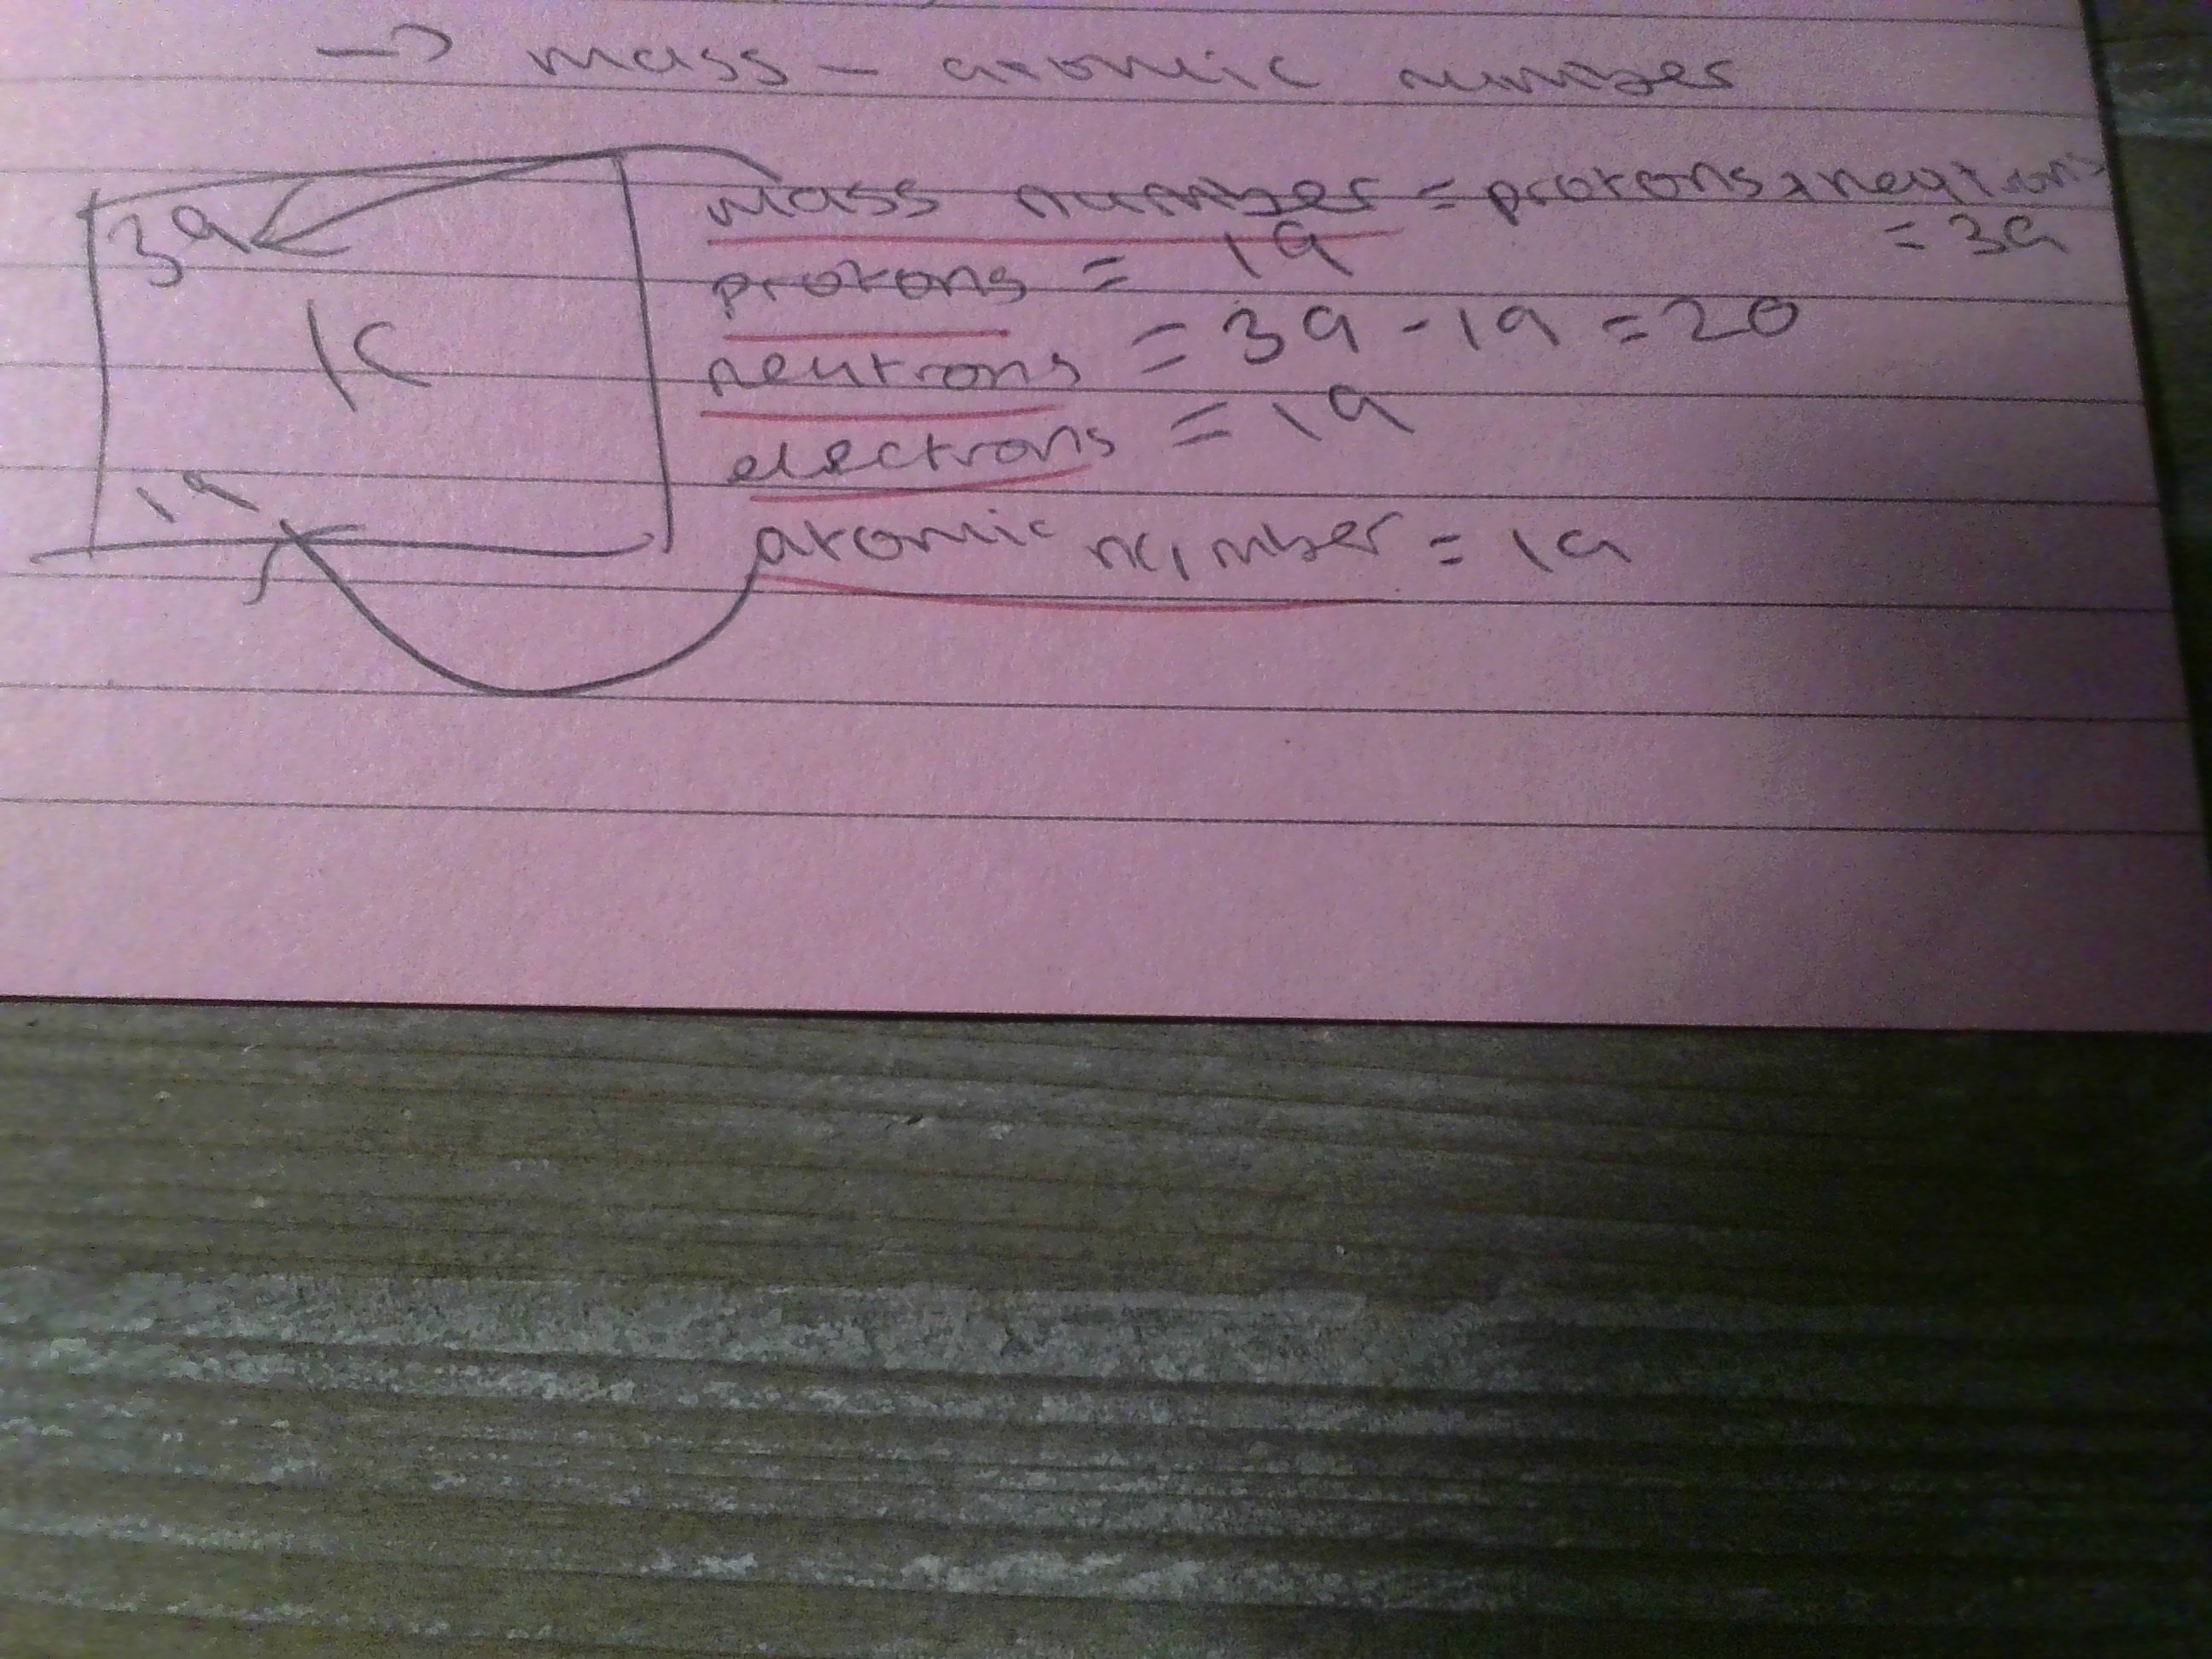 → mass - atomic number
39
K
19
mass number = protons + neutrons
= 39
protons = 19
neutrons = 39 - 19 = 20
electrons = 19
atomic number = 19